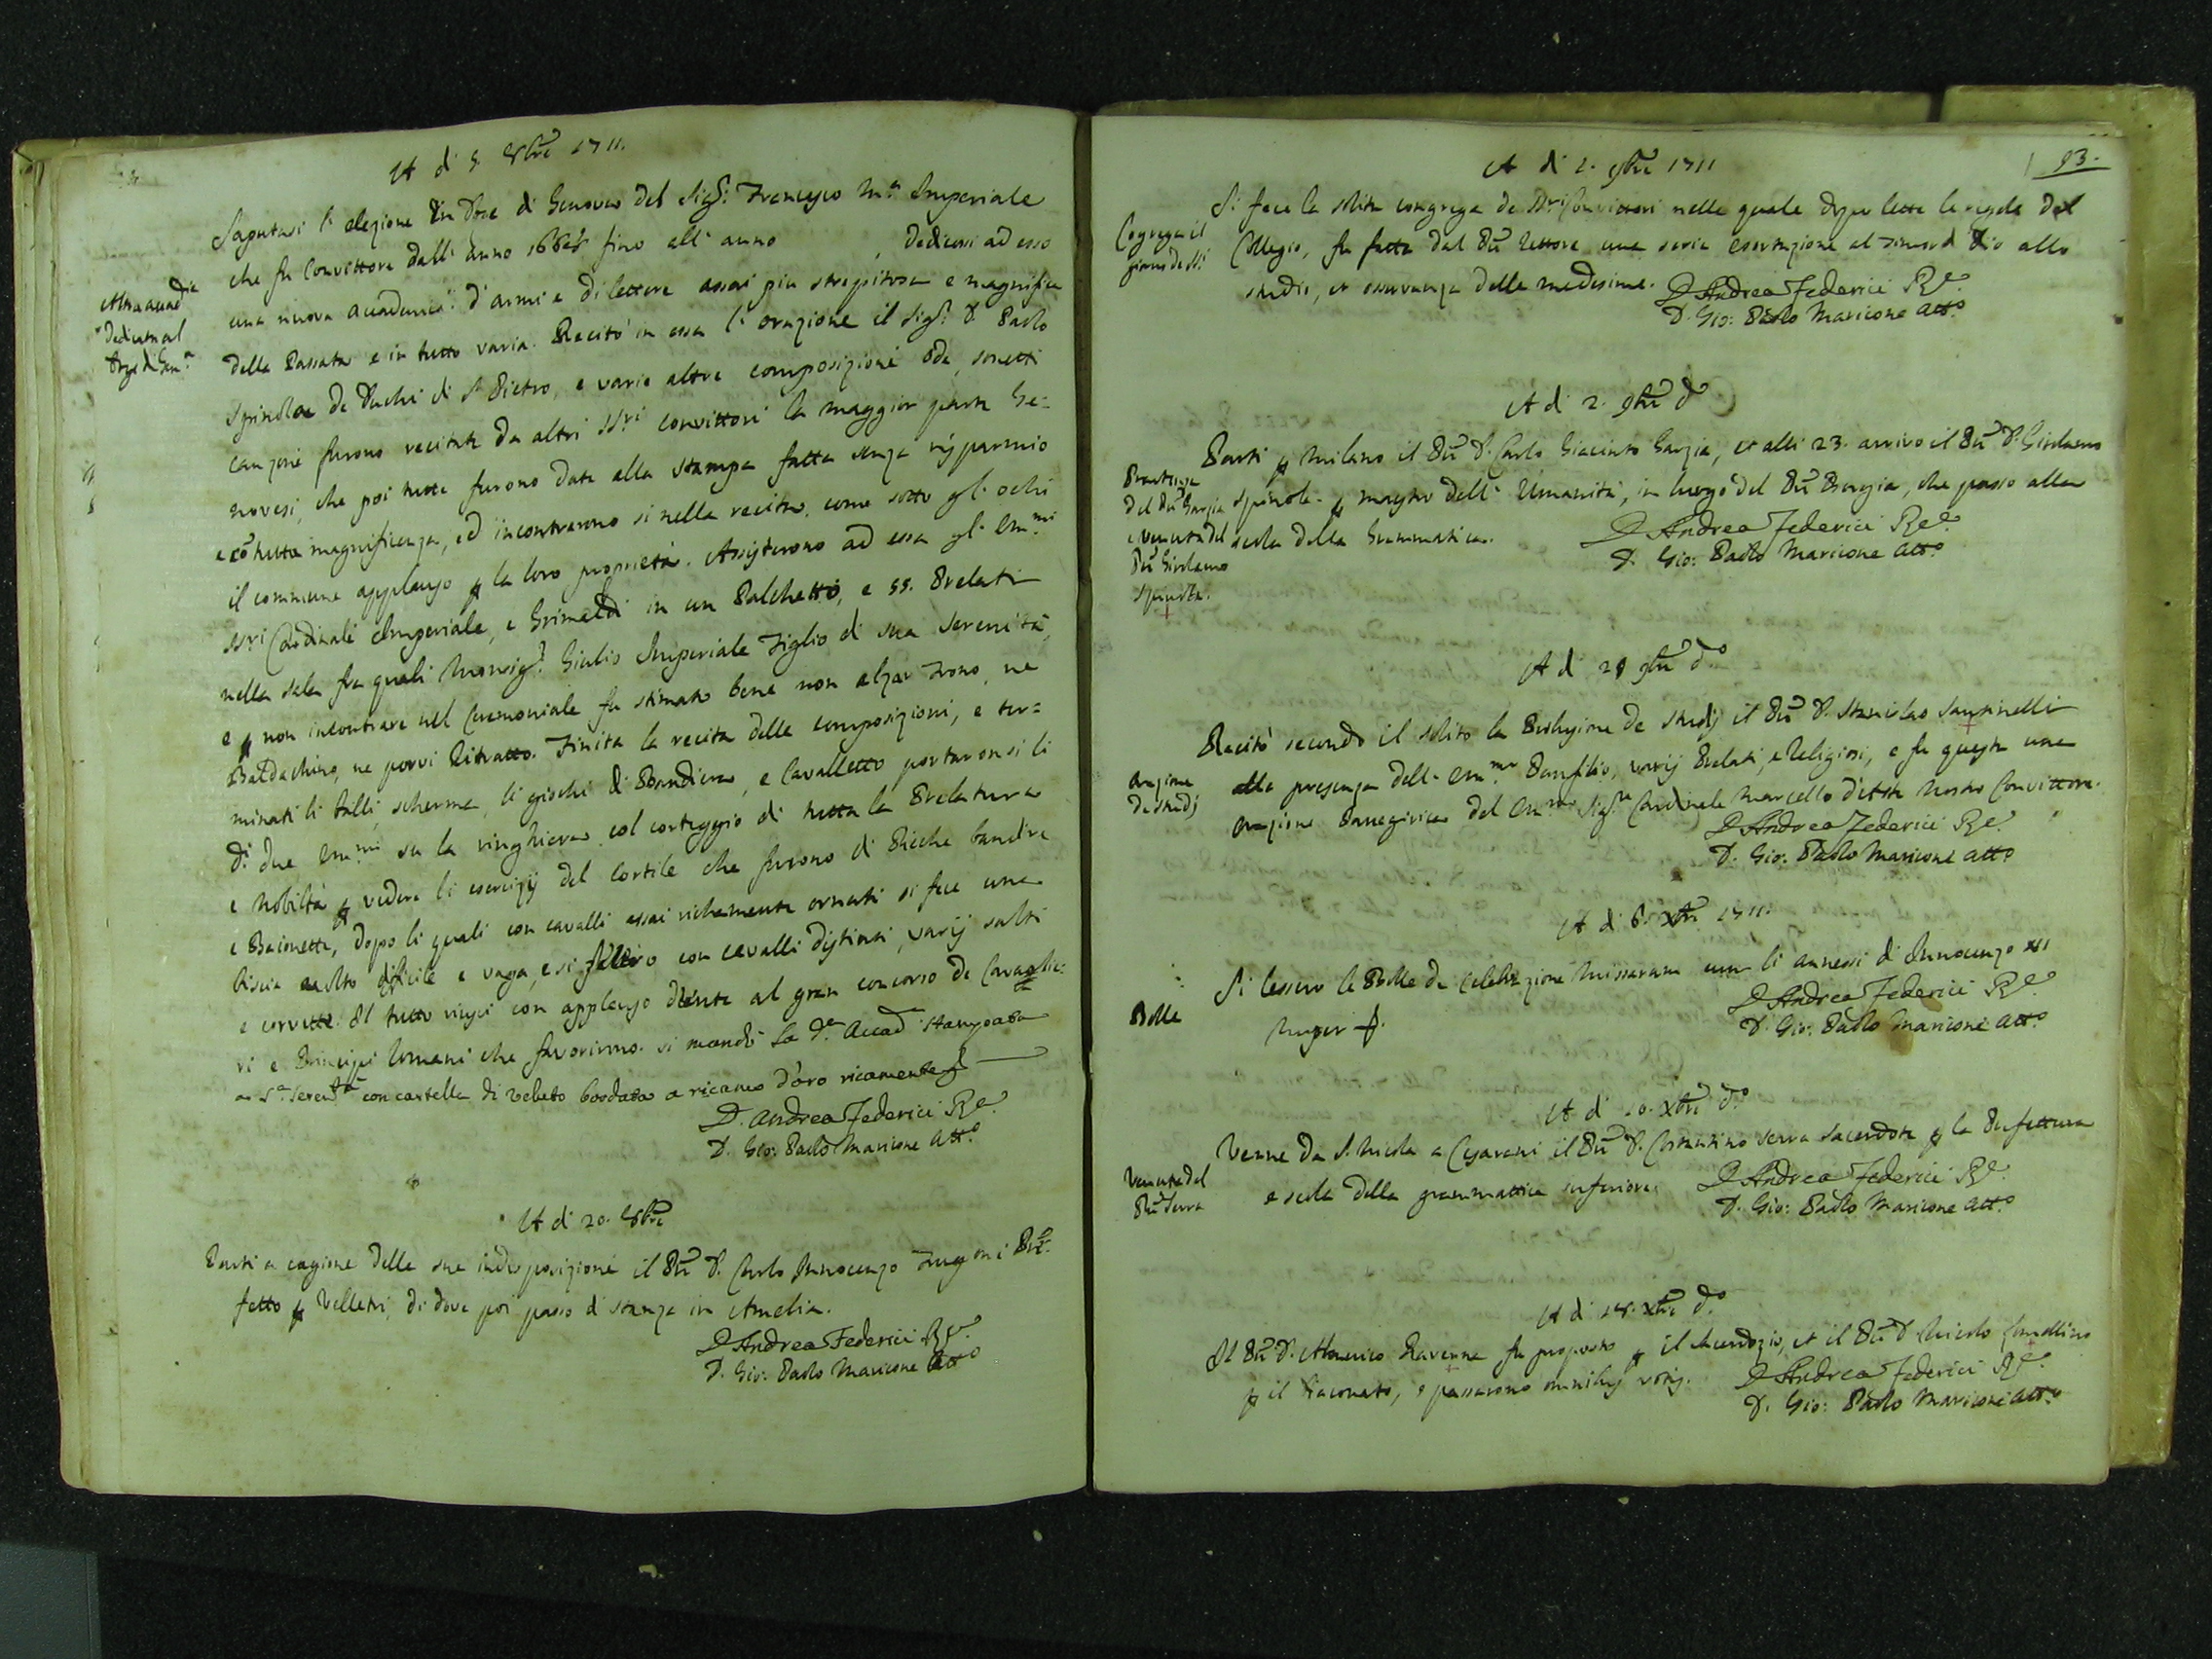 A di 5. 8bre 1711.
Saputasi l'elezione in Doge di Genova del Sig.r Francesco M.a Imperiale
che fu Convittore dall'anno fino all'anno , dedicossi ad esso
una nuova accademia d'armi e di lettere assai piu strepitosa e magnifica
della Passata e in tutto varia. Recitò in essa l'orazione il Sig.r D. Paolo
Spinola de Duchi di S. Pietro, e varie altre composizioni ode, sonetti
canzoni furono recitate da altri SS.ri convittori la maggior parte Ge=
novesi, che poi tutte furono date alla stampa fatta senza risparmio
e cō tutta magnificenza, ed incontrarono si nella recita, come sotto gl'ochi
il commune applauso p la loro proprietà. Assisterono ad essa gl'Em.mi
SS.ri Cardinali Imperiale, e Grimaldi in un Palchetto, e 55. Prelati
nella sala fra quali Monsig.r Giulio Imperiale Figlio di sua Serenità,
e p non incontrare nel Ceremoniale fu stimato bene non alzar Trono, ne
Baldachino, ne porvi Ritratto. Finita la recita delle composizioni, e ter=
minati li balli, scherma, li giochi di Bandiera, e Cavalletto portaronsi li
d.i due Em.mi su la ringhiera col corteggio di tutta la Prelatura
e Nobiltà p vedere li esercizij del Cortile che furono di Picche bandire
e Baionette, dopo li quali con cavalli assai richamente ornati si fece una
biscia molto dificile e vaga, e si fecero con cavalli distinti, varij salti
e corvette. Il tutto riuscì con applauso al gran concorso de Cavaglie=
ri e Principi Romani che favorirono. si mandò la d.a Accad. stampata
a S.a Seren.tà con cartella di veluto bordata a ricamo d'oro ricamente
D. Andrea Federici Re.
D. Gio: Paolo Maricone Att.o
Altra accad.ia
Dedicata al
Doge di Gen.a
A di 20. 8bre
Parti a cagione della sua indisposizione il Pre D. Carlo Innocenzo Frugoni Pre=
fetto p Velletri, di dove poi passò di stanza in Amelia.
D. Andrea Federici Re.
D. Gio: Paolo Maricone Att.o
93.
A di 2. 9bre 1711
Si fece la solita congrega de SS.ri Convittori nella quale dopo lette le regole del
Collegio, fu fatta dal Pre Rettore una seria esortazione al timor d'Dio allo
studio, et osservanza delle medesime. D. Andrea Federici Re.
D. Gio: Paolo Maricone Att.o
Cogrega il
giorno de
A di 2. 9bre d.o
Parti p Milano il Pre D. Carlo Giacinto Garzia, et alli 23. arrivo il Pre D. Girolamo
Spinola p maestro dell'Umanità, in luogo del Pre Borgia, che passò alla
scola della Grammatica. D. Andrea Federici Re.
D. Gio: Paolo Maricone Att.o
Partenza
del Pre Garzia
e venuta del
Pre Girolamo
Spinola.
A di 28 9bre d.o
Recitò secondo il solito la Prolusione de Studij il Pre D. Stanislao Santinelli
alla presenza dell'Em.mo Panfilio, varij Prelati, e Religiosi, e fu questa una
orazione Panegirica del Em.mo Sig.re Cardinale Marcello d'Aste nostro Convittore.
D. Andrea Federici Re.
D. Gio: Paolo Maricone Att.o
Orazione
de Studij
A di 6. Xbre 1711.
Si lessero le Bolle de Celebrazione Missarum con li annessi di Innocenzo XI
nuper D. Andrea Federici Re.
D. Gio: Paolo Maricone Att.o
Bolle
A di 10. Xbre d.o
Venne da S. Nicola a Cesarini il Pre D. Costantino Serra Sacerdote p la Prefettura
e scola della grammatica inferiore. D. Andrea Federici Re.
D. Gio: Paolo Maricone Att.o
Venuta del
Pre Serra
A di 18. Xbre d.o
Il Pre D. Almerico Ravenna fu proposto p il Sacerdozio, et il Pre D. Nicolo Comellino
p il Diaconato, e passarono omnibus votis. D. Andrea Federici Re.
D. Gio: Paolo Maricone Att.o